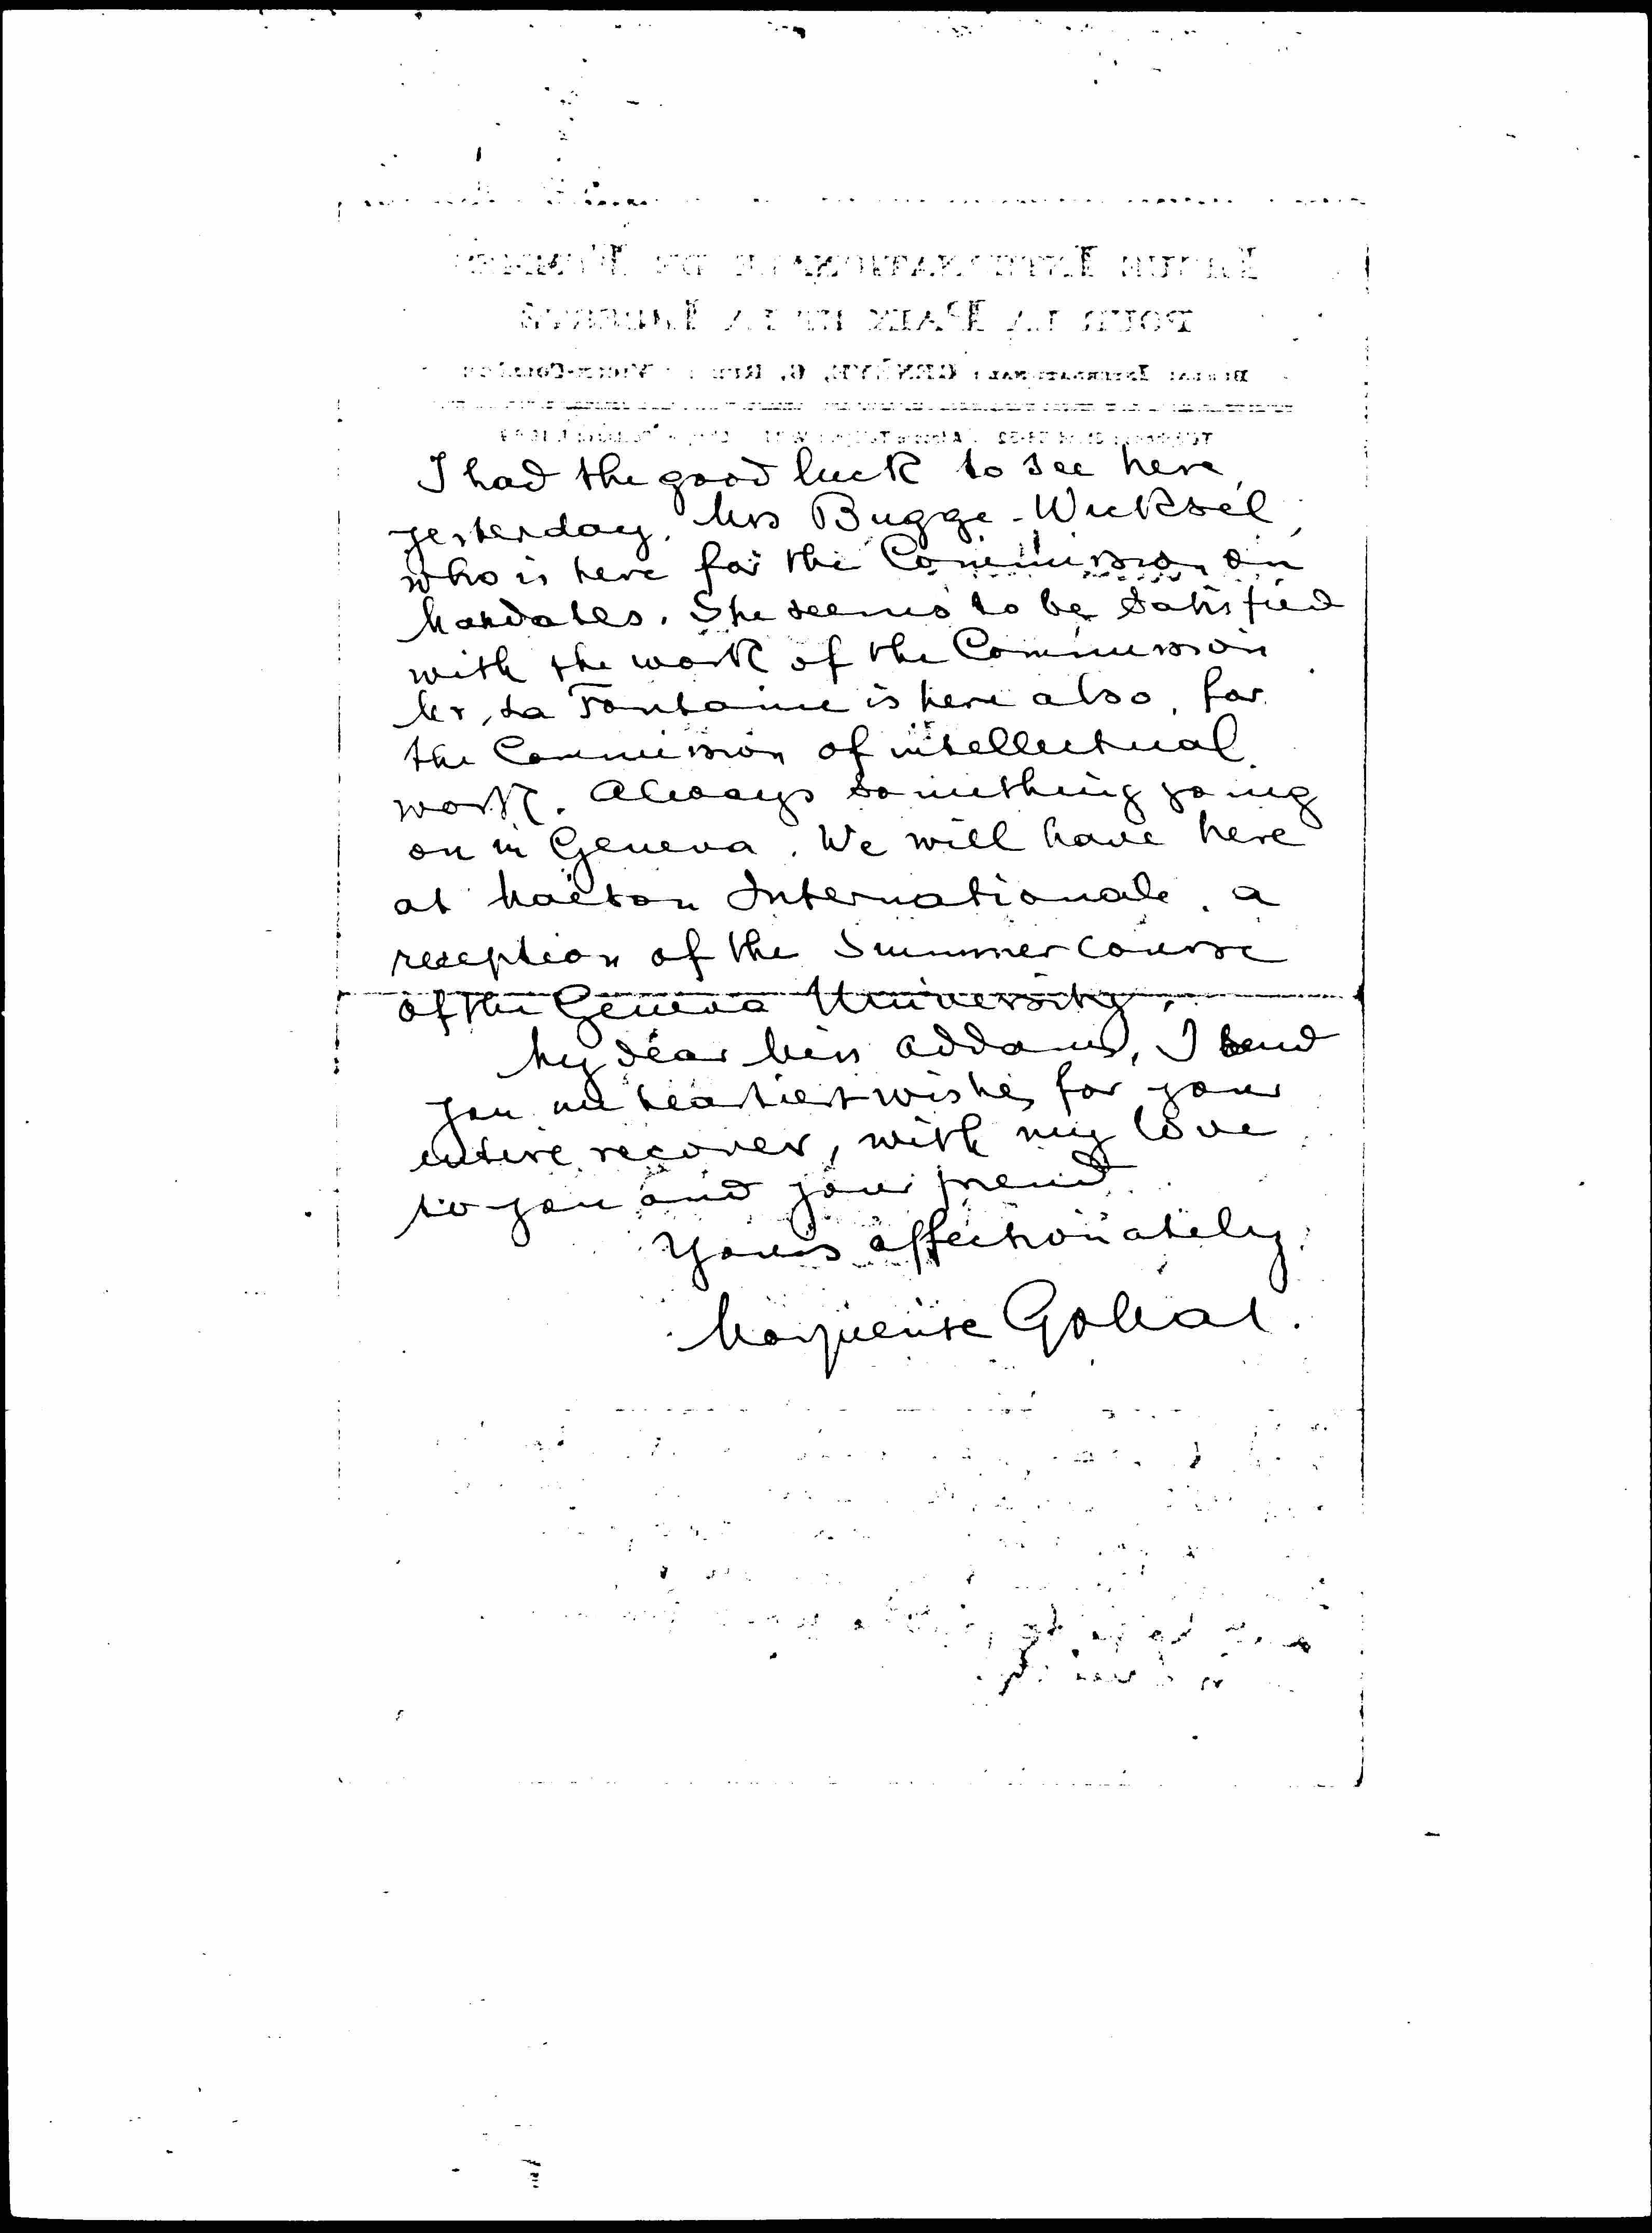 I had the good luck to see here
yesterday, Mrs Bugge-Wicksel,
who is here for the Commission on
Mandates. She seems to be satisfied
with the work of the Commission
Mr. La Fontaine is here also, for
the Commission of intellectual
work. Always something going
on in Geneva. We will have here
at Maison Internationale, a
reception of the Summer course
of the Geneva University.
My dear Miss Addams, I send
you me heartiest wishes for your
entire recover, with my love
to you and your friend
Yours affectionately
Marguerite Gobat.